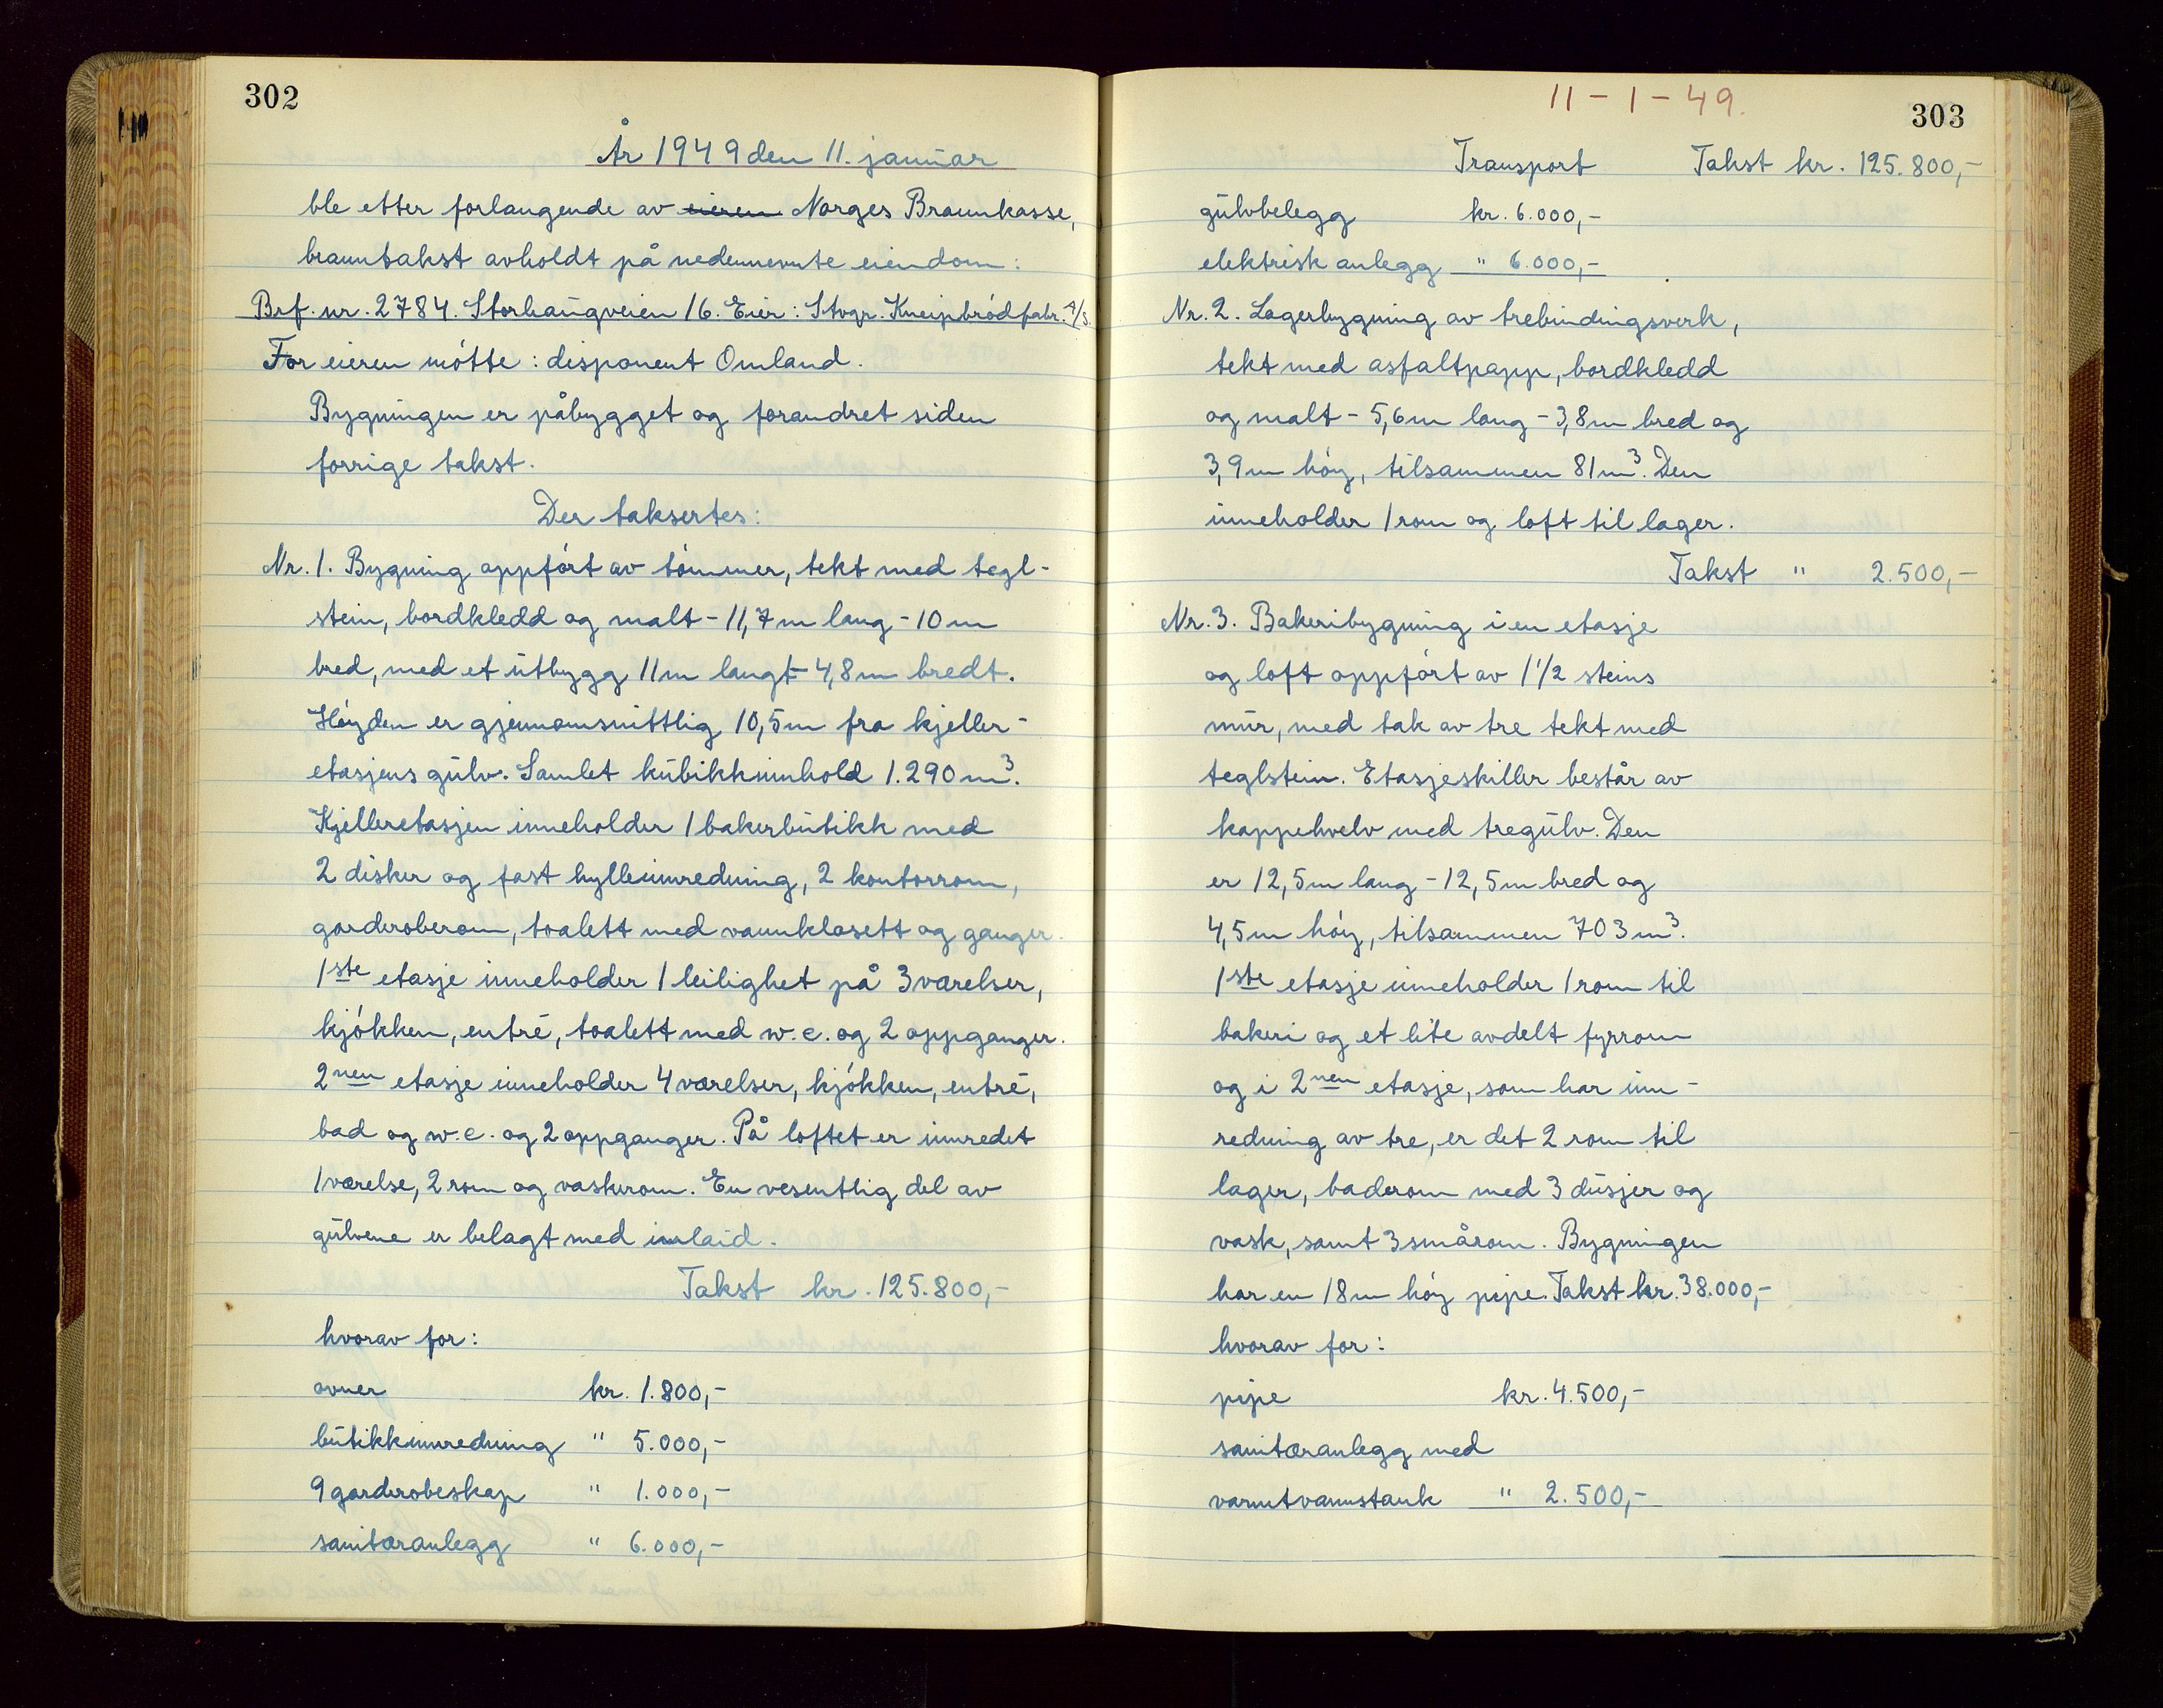 302
År 1949 den 11. januar
ble etter forlangende av eieren Norges Brannkasse,
branntakst avholdt på nedennevnte eiendom:
Brf. nr. 2784. Storhaugveien 16. Eier: Stvgr. Kneipbrödfabr. A/S.
For eieren mötte: disponent Omland.
Bygningen er påbygget og forandret siden
forrige takst.
Der taksertes:
Nr. 1. Bygning oppfört av tömmer, tekt med tegl-
stein, bordkledd og malt - 11,7 m lang - 10 m
bred, med et utbygg 11 m langt - 4,8 m bredt.
Höyden er gjennomsnittlig 10,5 m fra kjeller-
etasjens gulv. Samlet kubikkinnhold 1.290 m³.
Kjelleretasjen inneholder 1 bakerbutikk med
2 disker og fast hylleinnredning, 2 kontorrom,
garderoberom, toalett med vannklosett og ganger.
1ste etasje inneholder 1 leilighet på 3 værelser,
kjökken, entré, toalett med w.c. og 2 oppganger.
2nen etasje inneholder 4 værelser, kjökken, entré,
bad og w.c. og 2 oppganger. På loftet er innredet
1 værelse, 2 rom og vaskerom. En vesentlig del av
gulvene er belagt med inlaid.
Takst kr. 125.800,-
hvorav for:
ovner kr. 1.800,-
butikkinnredning " 5.000,-
9 garderobeskap " 1.000,-
sanitæranlegg " 6.000,-
11 - 1 - 49.
303
Transport Takst kr. 125.800,-
gulvbelegg kr. 6.000,-
elektrisk anlegg " 6.000,-
Nr. 2. Lagerbygning av trebindingsverk,
tekt med asfaltpapp, bordkledd
og malt - 5,6 m lang - 3,8 m bred og
3,9 m höy, tilsammen 81 m³. Den
inneholder 1 rom og loft til lager.
Takst " 2.500,-
Nr. 3. Bakeribygning i en etasje
og loft oppfört av 1 1/2 steins
mur, med tak av tre tekt med
teglstein. Etasjeskiller består av
kappehvelv med tregulv. Den
er 12,5 m lang - 12,5 m bred og
4,5 m höy, tilsammen 703 m³.
1ste etasje inneholder 1 rom til
bakeri og et lite avdelt fyrrom
og i 2nen etasje, som har inn-
redning av tre, er det 2 rom til
lager, baderom med 3 dusjer og
vask, samt 3 smårom. Bygningen
har en 18 m höy pipe. Takst kr. 38.000,-
hvorav for:
pipe kr. 4.500,-
sanitæranlegg med
varmtvannstank " 2.500,-